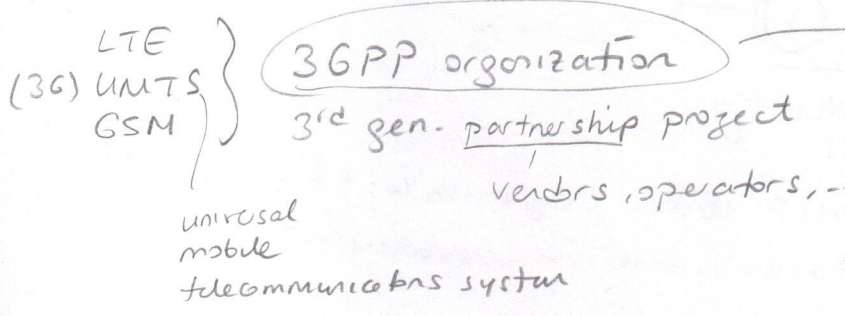 LTE
(3G) UMTS
GSM
3GPP organization
3rd gen. partnership project
vendors, operators, --
universal
mobile
telecommunications system